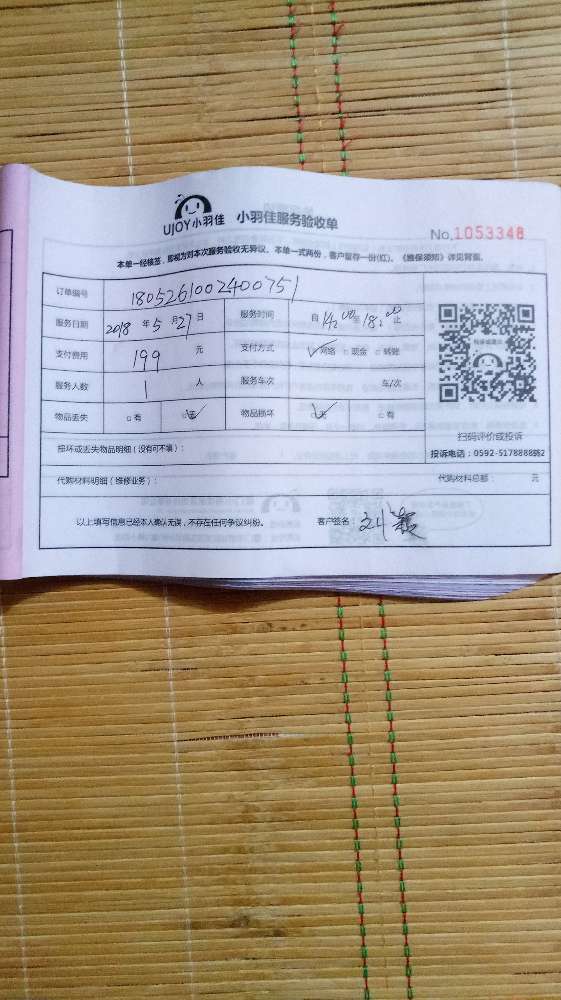 UJOY小羽佳 小羽佳服务验收单
No.1053348
本单一经核签，即视为对本次服务验收无异议。本单一式两份，客户留存一份(红)。《维保须知》详见背面。
订单编号 1805261002400751
服务日期 2018 年 5 月 27 日 服务时间 自 至 止
支付费用 199 元 支付方式 ✓网络 □现金 □转账
服务人数 1 人 服务车次 车/次
物品丢失 □有 ✓无 物品损坏 ✓无 □有
扫码评价或投诉
损坏或丢失物品明细（没有可不填）：
投诉电话：0592-5178888转2
代购材料明细（维修业务）： 代购材料总额： 元
以上填写信息已经本人确认无误，不存在任何争议纠纷。 客户签名：刘